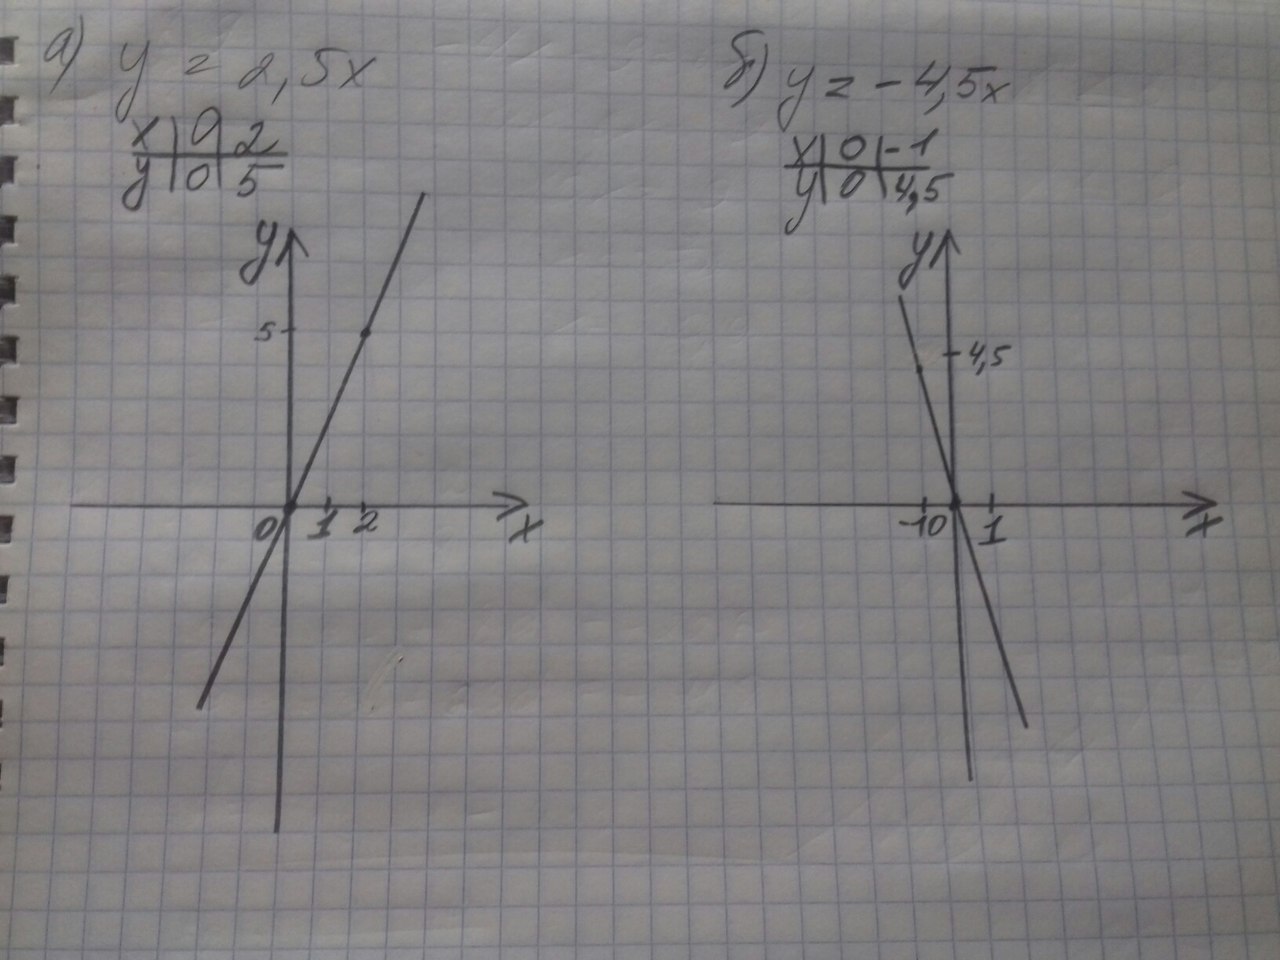 а) y = 2,5x
x | 0 | 2
y | 0 | 5
y
5
0 1 2 x
б) y = -4,5x
x | 0 | -1
y | 0 | 4,5
y
4,5
-1 0 1 x